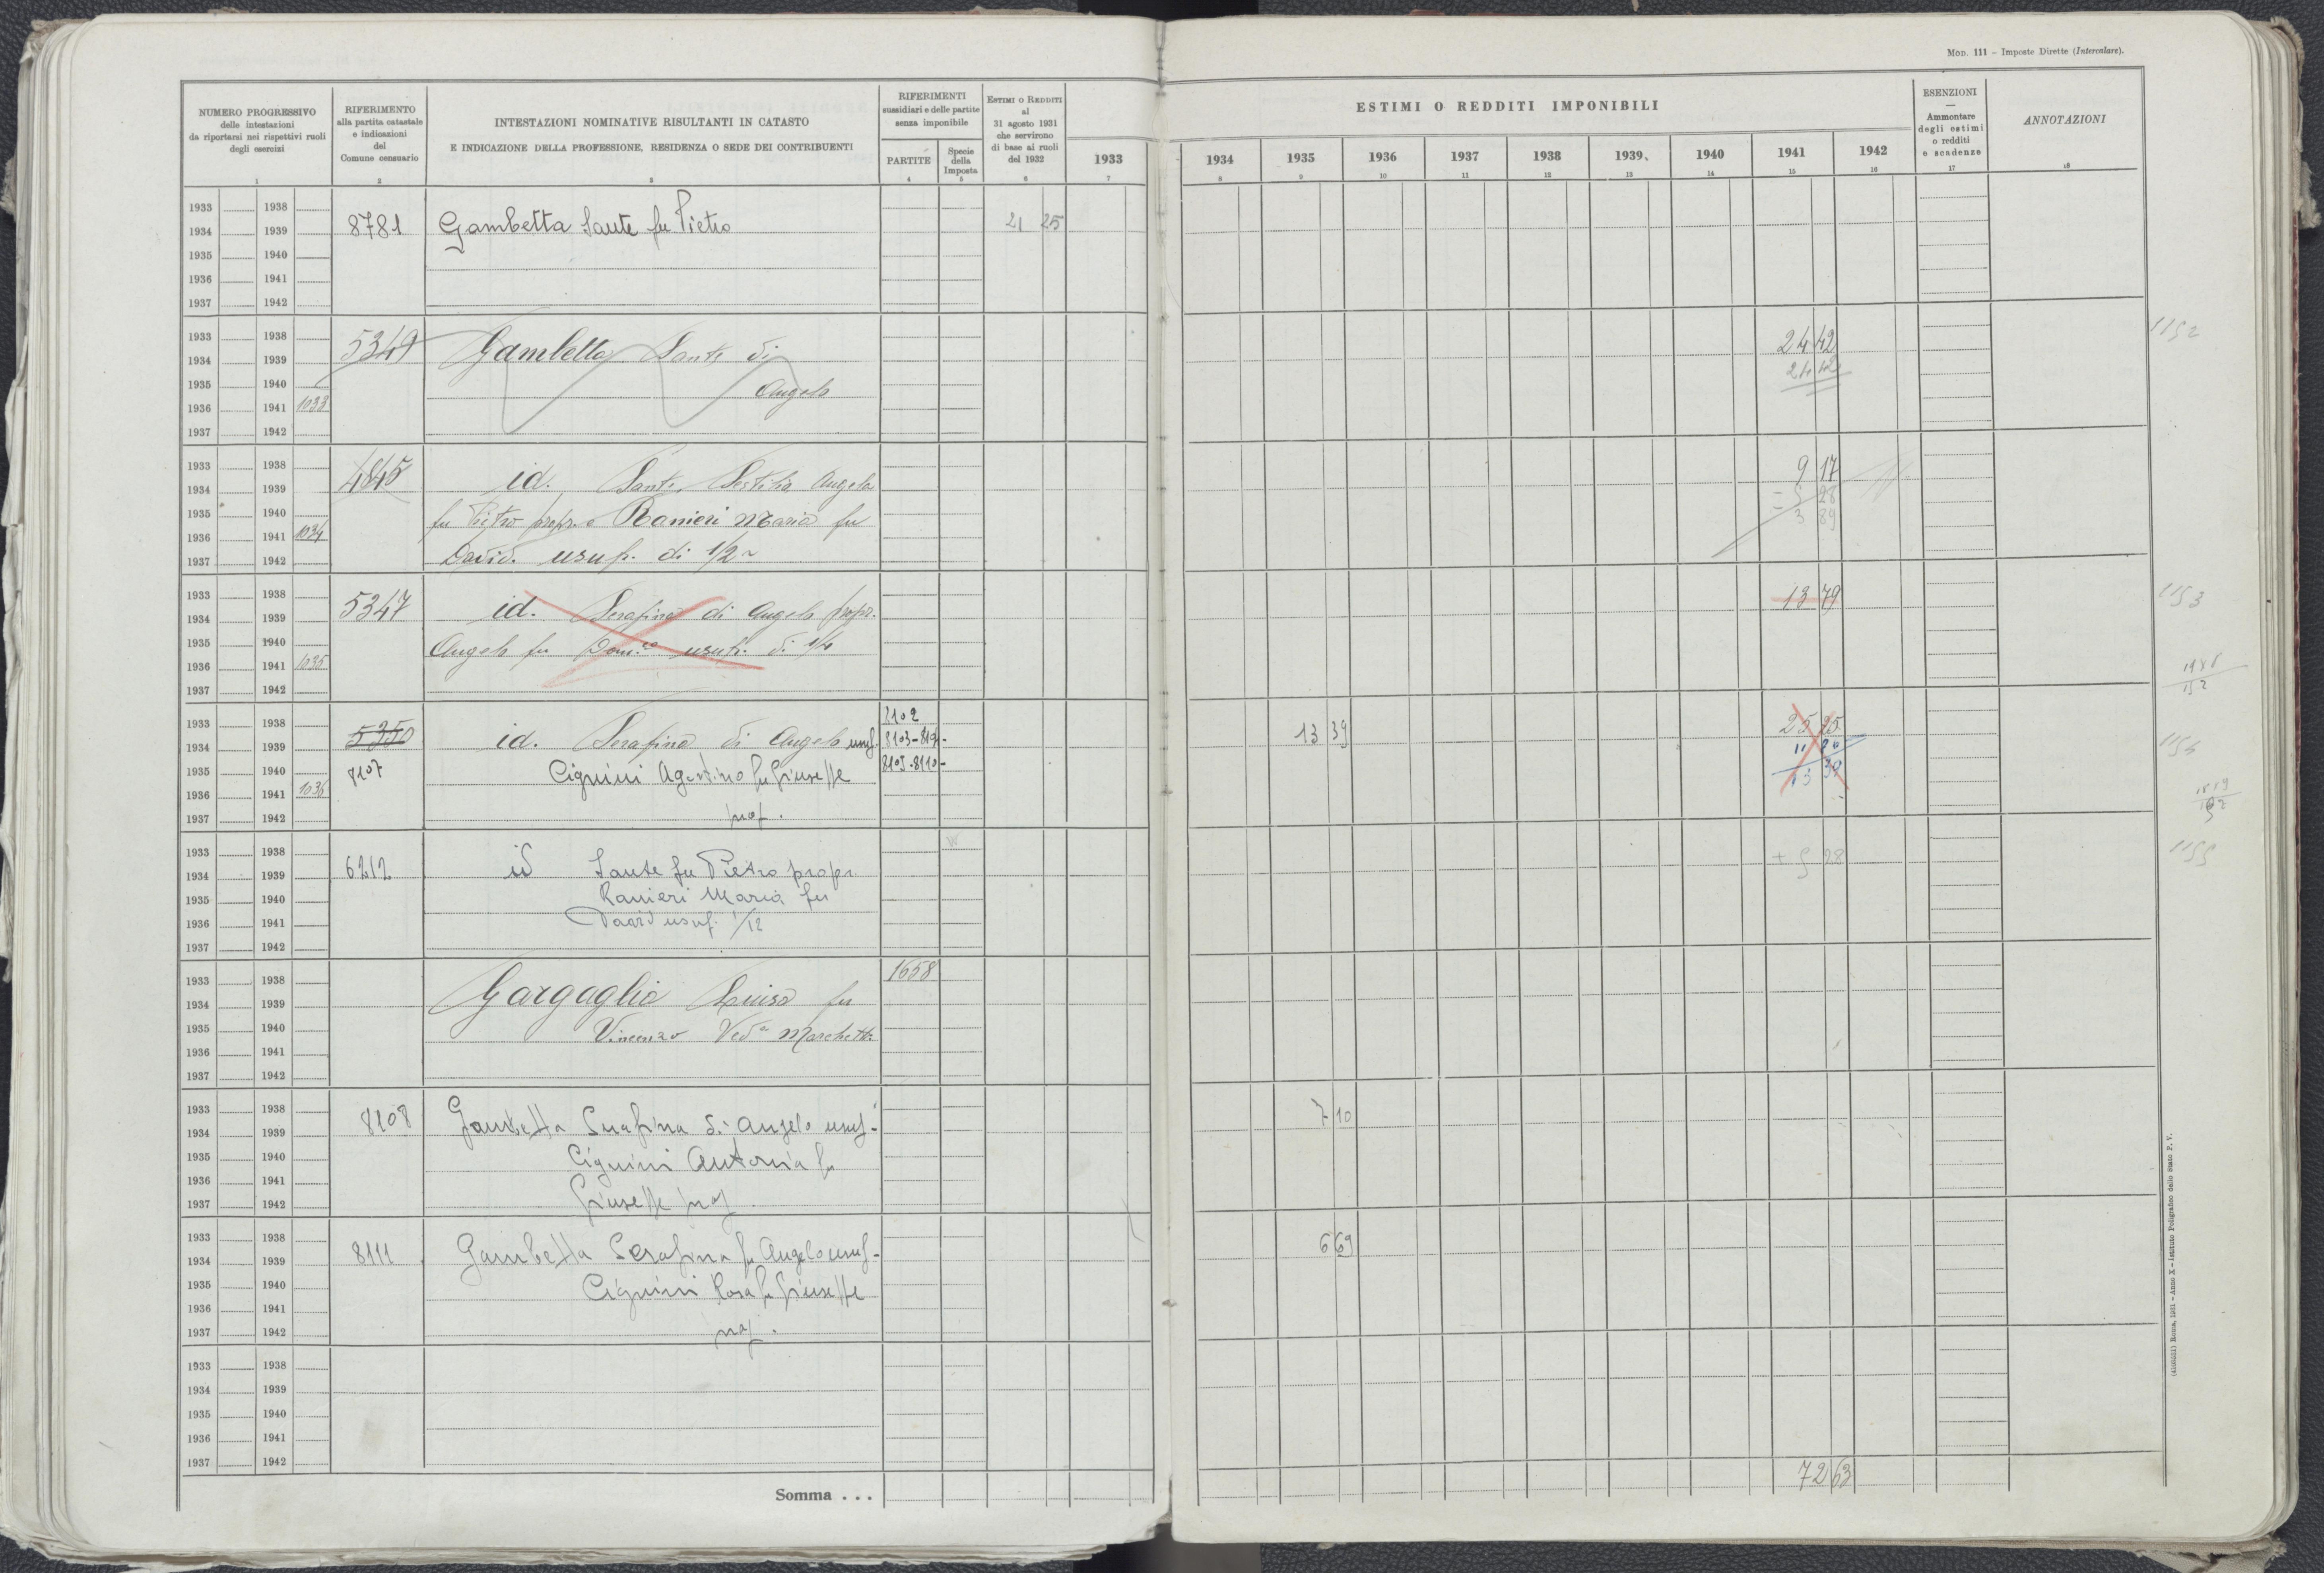 Mod. 111 – Imposte Dirette (Intercalare).
NUMERO PROGRESSIVO
delle intestazioni
da riportarsi nei rispettivi ruoli
degli esercizi
RIFERIMENTO
alla partita catastale
e indicazioni
del
Comune censuario
INTESTAZIONI NOMINATIVE RISULTANTI IN CATASTO
E INDICAZIONE DELLA PROFESSIONE, RESIDENZA O SEDE DEI CONTRIBUENTI
RIFERIMENTI
sussidiari e delle partite
senza imponibile
PARTITE
Specie
della
Imposta
Estimi o Redditi
al
31 agosto 1931
che servirono
di base ai ruoli
del 1932
ESTIMI O REDDITI IMPONIBILI
1933 1934 1935 1936 1937 1938 1939 1940 1941 1942
ESENZIONI
—
Ammontare
degli estimi
o redditi
e scadenze
ANNOTAZIONI
1 2 3 4 5 6 7 8 9 10 11 12 13 14 15 16 17 18
1933 1938
1934 1939 8781 Gambetta Sante fu Pietro 21 25
1935 1940
1936 1941
1937 1942
1933 1938 5349 Gambetta Sante di 24 42 1152
1934 1939 24 42
1935 1940 Angelo
1936 1941 1033
1937 1942
1933 1938 4845 id. Sante, Sestilia Angela 9 17
1934 1939 – 5 28
1935 1940 fu Pietro propr. e Ranieri Maria fu 3 89
1936 1941 1034
1937 1942 David. usuf. di 1/2
1933 1938 5347 id. Serafina di Angelo propr. 13 79 1153
1934 1939
1935 1940 Angelo fu Dom.co usuf. di 1/4
1936 1941 1035
1937 1942
1933 1938 5350 8102 13 39 25 25
1934 1939 id. Serafina di Angelo usuf. 8103-
1935 1940 8107 Cignini Agostino fu Giuseppe 8105-8110- 13 39
1936 1941 1036
1937 1942 prop.
1933 1938 + 5 28 1155
1934 1939 6212 id Sante fu Pietro propr
1935 1940 Ranieri Maria fu
1936 1941 David usuf. 1/12
1937 1942
1933 1938 1658
1934 1939 Gargaglia Luisa fu
1935 1940 Vincenzo Ved.a Marchetti
1936 1941
1937 1942
1933 1938 8108 Gambetta Serafina di Angelo usuf. 7 10
1934 1939
1935 1940 Cignini Antonia fu
1936 1941
1937 1942 Giuseppe prop.
1933 1938 6 69
1934 1939 8111 Gambetta Serafina fu Angelo usuf-
1935 1940 Cignini Rosa fu Giuseppe
1936 1941
1937 1942 prop.
1933 1938
1934 1939
1935 1940
1936 1941
1937 1942
Somma . . . 72 63
(4100521) Roma, 1931 – Anno X – Istituto Poligrafico dello Stato P. V.